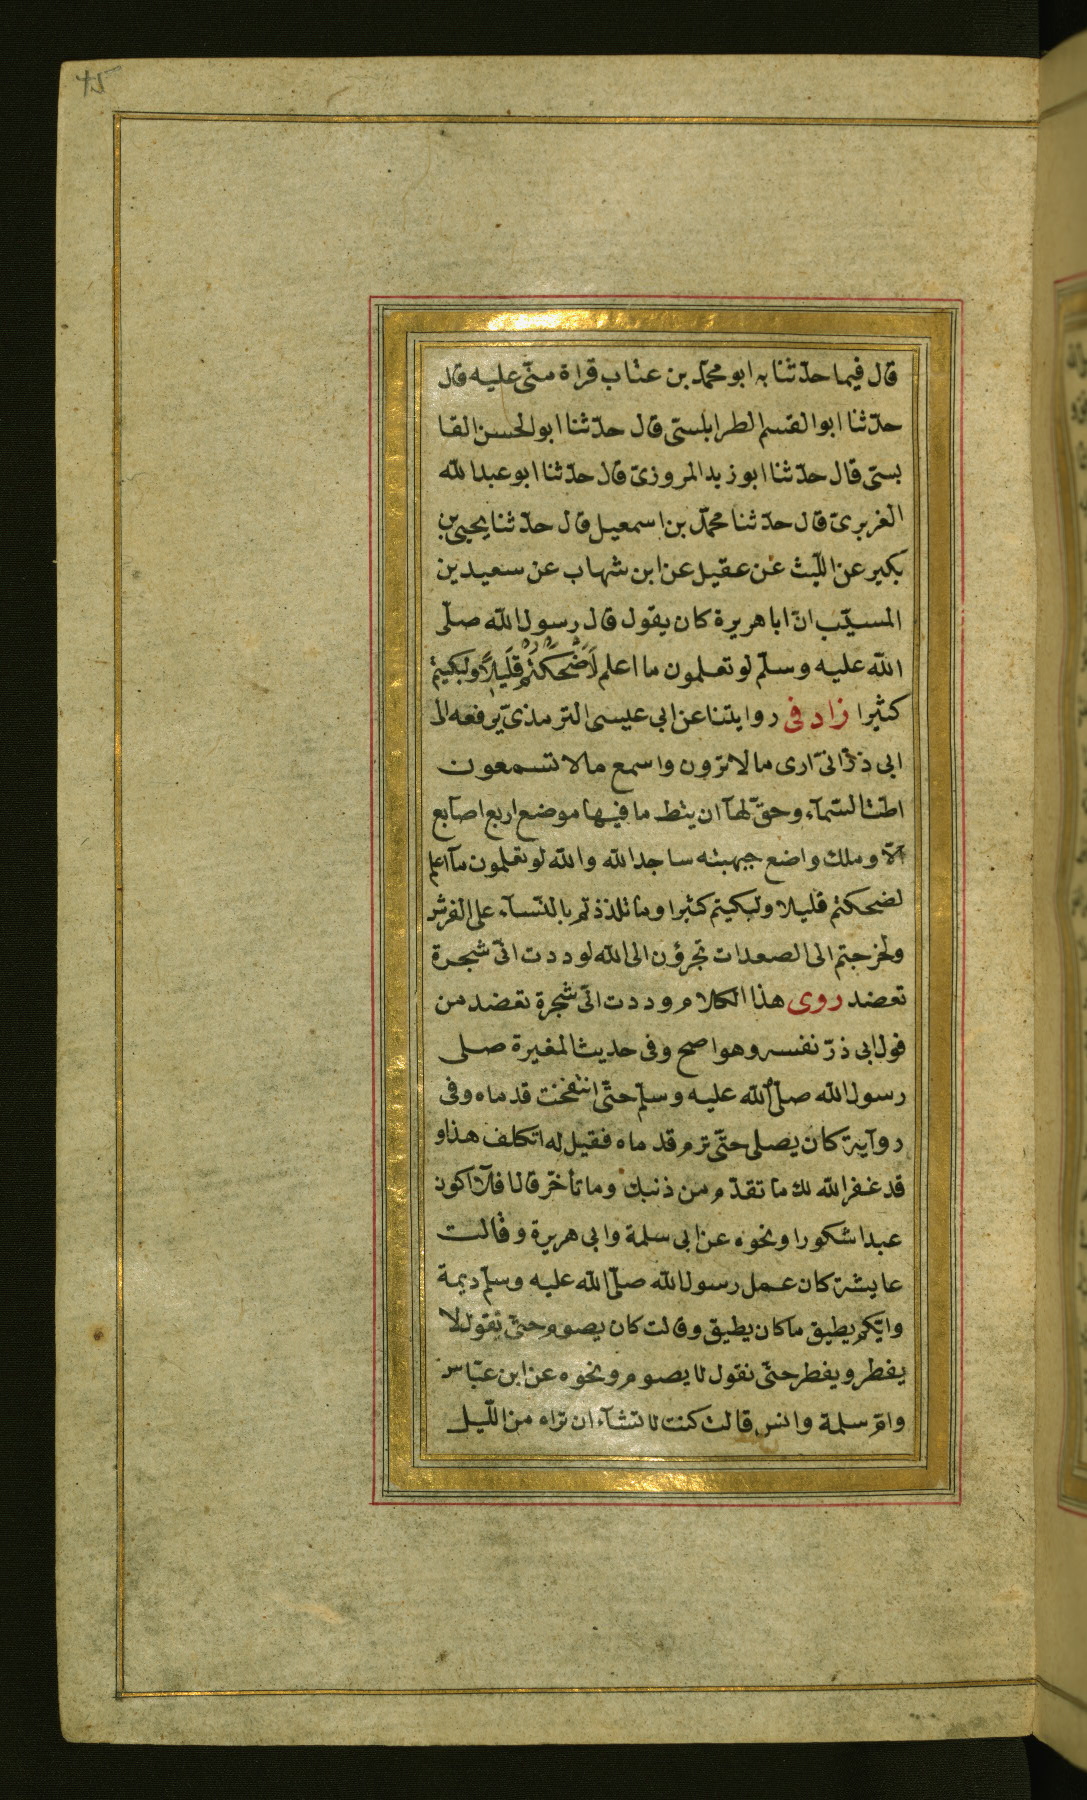 ٤٥
قال فيما حدّثنا به ابو محمّد بن عتاب قراة منّي عليه قال
حدّثنا ابو القسم الطرابلستى قال حدّثنا ابو الحسن القا
بستى قال حدّثنا ابو زيد المروزىّ قال حدّثنا ابو عبد الله
الغربرىّ قال حدّثنا محمّد بن اسمعيل قال حدّثنا يحيى بن
بكير عن اللّيث عن عقيل عن ابن شهاب عن سعيد بن
المسيّب انّ ابا هريرة كان يقول قال رسول الله صلّى
الله عليه وسلّم لو تعلمون ما اعلم لَضَحَكْتُمْ قَلَيلاً ولبكيتم
كثيرا زاد فى روايتنا عن ابى عيسى الترمذىّ يرفعه الى
ابى ذرّ انّى ارى مالا ترون واسمع مالا تسمعون
اطّت السّمآء وحقّ لهآ ان يئط ما فيها موضع اربع اصابع
الّا وملك واضع جبهته ساجدا لله والله لو تعلمون مآ اعلم
لضحكتم قليلا ولبكيتم كثيرا وما تلذذتم بالنّسآء على الفرش
ولخرجتم الى الصعدات تجرؤن الى الله لوددت انّى شجرة
تعضد روى هذا الكلام وددت انّى شجرة تعضد من
قول ابى ذرّ نفسه وهو اصح وفى حديث المغيرة صلى
رسول الله صلّى الله عليه وسلّم حتّى انتفخت قدماه وفى
روآية كان يصلى حتّى ترم قدماه فقيل له اتكلف هذا و
قد غفر الله لك ما تقدّم من ذنبك وما تأخّر قال افلآ اكون
عبدا شكورا ونحوه عن ابى سلمة وابى هريرة وقالت
عايشة كان عمل رسول الله صلّى الله عليه وسلّم ديمة
وايّكم يطيق ما كان يطيق وقالت كان يصوم حتّى نقول لا
يفطر ويفطر حتّى نقول لا يصوم ونحوه عن ابن عبّاس
وامّ سلمة وانس قالت كنت لا تشآء ان تراه من اللّيل